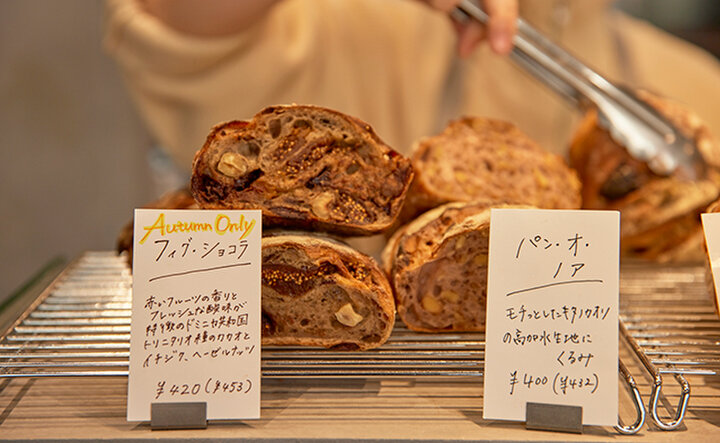 Autumn Only
フィグ・ショコラ
赤いフルーツの香りと
フレッシュな酸味が
特徴のドミニカ共和国
トリニタリオ種のカカオと
イチジク、ヘーゼルナッツ
¥420(¥453)
パン・オ・
ノア
モチっとしたキタノカオリ
の高加水生地に
くるみ
¥400(¥432)